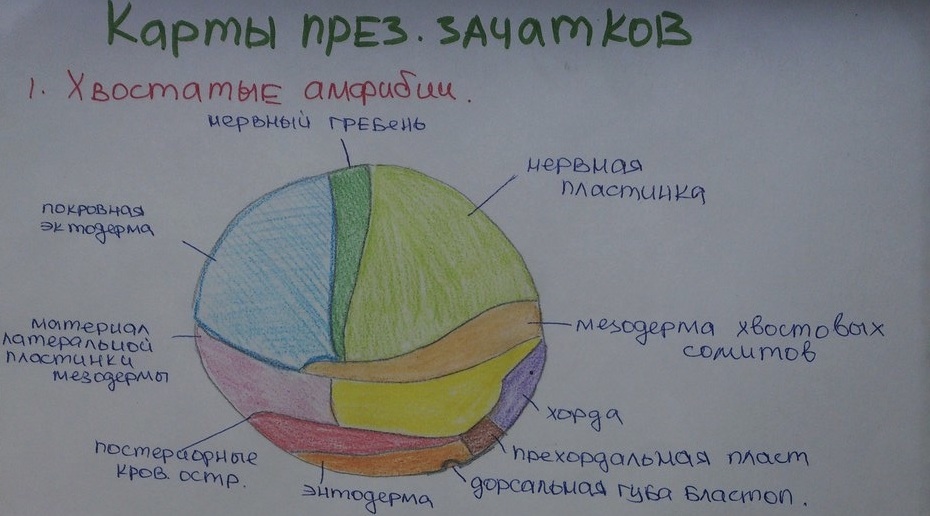 Карты през. зачатков
1. Хвостатые амфибии.
нервный гребень
нервная
пластинка
покровная
эктодерма
материал
латеральной
пластинки
мезодермы
мезодерма хвостовых
сомитов
хорда
постериорные
кров. остр.
прехордальная пласт
энтодерма
дорсальная губа бластоп.